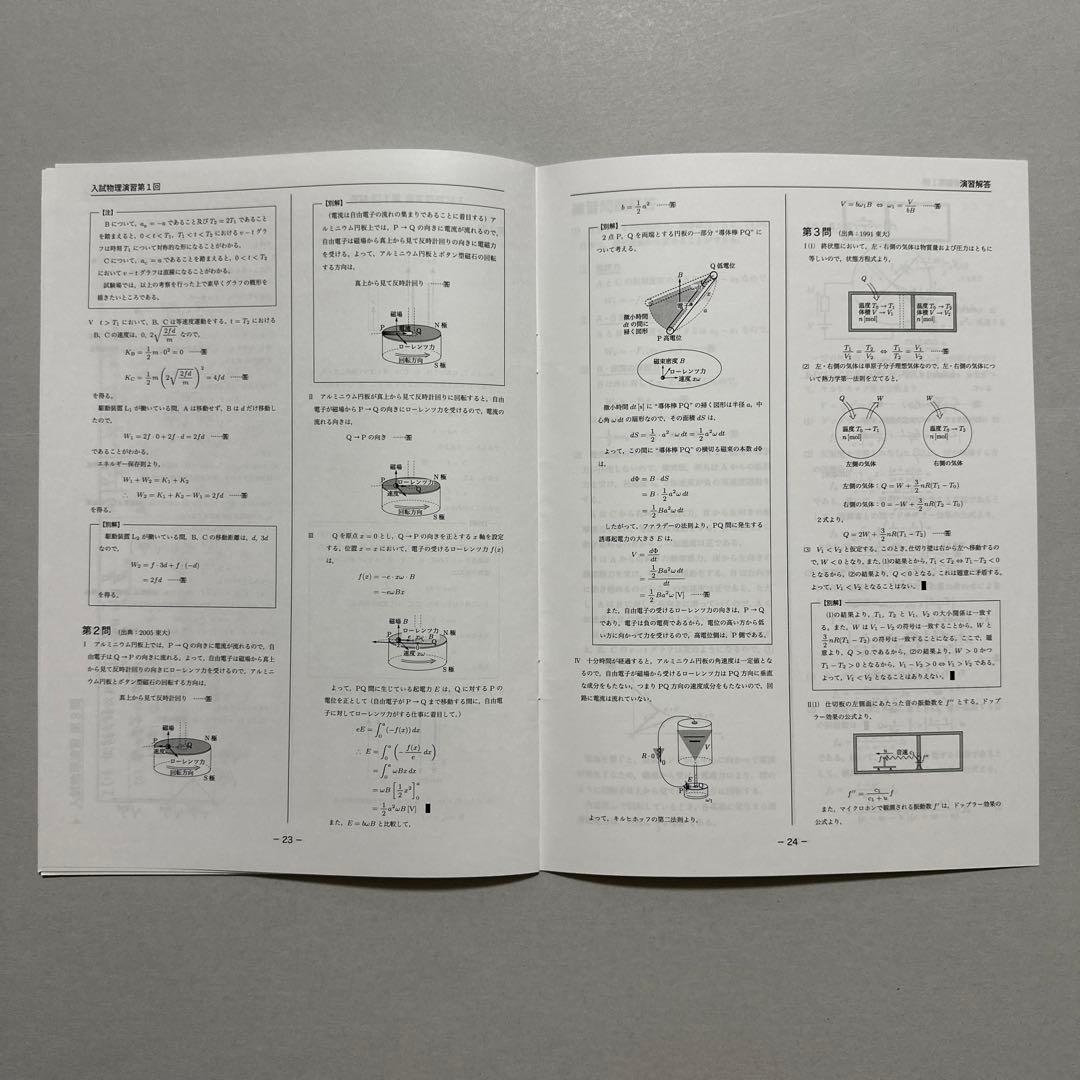 入試物理演習第1回
【注】
Bについて，a_x = -a であること及び T_2 = 2T_1 であること
を踏まえると，0 < t < T_1，T_1 < t < T_2 における v－t グラ
フは時刻 T_1 について対称的な形になることがわかる。
Cについて，a_x = a であることを踏まえると，0 < t < T_2
において v－t グラフは直線になることがわかる。
試験場では，以上の考察を行った上で素早くグラフの概形を
描きたいところである。
V t > T_1 において，B，C は等速度運動をする。t = T_2 における
B，C の速度は，0，2√(2fd/m) なので，
K_B = 1/2 m・0² = 0 ……答
K_C = 1/2 m (2√(2fd/m))² = 4fd ……答
を得る。
駆動装置 L_1 が働いている間，A は移動せず，B は d だけ移動し
たので，
W_1 = 2f・0 + 2f・d = 2fd ……答
であることがわかる。
エネルギー保存則より，
W_1 + W_2 = K_1 + K_2
∴ W_2 = K_1 + K_2 - W_1 = 2fd ……答
を得る。
【別解】
駆動装置 L_2 が働いている間，B，C の移動距離は，d，3d
なので，
W_2 = f・3d + f・(-d)
= 2fd ……答
を得る。
第2問 （出典：2005 東大）
I アルミニウム円板上では，P → Q の向きに電流が流れるので，自
由電子は Q → P の向きに流れる。よって，自由電子は磁場から真上
から見て反時計回りの向きにローレンツ力を受けるので，アルミニ
ウム円板とボタン型磁石の回転する方向は，
真上から見て反時計回り ……答
磁場
N 極
P
Q
速度
ローレンツ力
回転方向
S 極
【別解】
（電流は自由電子の流れの集まりであることに着目する）ア
ルミニウム円板上では，P → Q の向きに電流が流れるので，
自由電子は磁場から真上から見て反時計回りの向きに電磁力
を受ける。よって，アルミニウム円板とボタン型磁石の回転
する方向は，
真上から見て反時計回り ……答
磁場
N 極
P
電流
Q
ローレンツ力
回転方向
S 極
II アルミニウム円板が真上から見て反時計回りに回転すると，自由
電子が磁場から P → Q の向きにローレンツ力を受けるので，電流の
流れる向きは，
Q → P の向き ……答
磁場
ローレンツ力
N 極
P
Q
速度
回転方向
S 極
III Q を原点 x = 0 とし，Q → P の向きを正とする x 軸を設定
する。位置 x = x において，電子の受けるローレンツ力 f(x)
は，
f(x) = -e・xω・B
= -eωBx
磁場 B
ローレンツ力
N 極
P
Q
速度 xω
回転方向
S 極
よって，PQ 間に生じている起電力 E は，Q に対する P の
電位を正として（电子が P → Q まで移動する間に，自由電
子に対してローレンツ力がする仕事に着目して，）
eE = ∫_0^a (-f(x)) dx
∴ E = ∫_0^a (-f(x)/e dx)
= ∫_0^a ωBx dx
= ωB [1/2 x²]_0^a
= 1/2 a²ωB [V]
また，E = bωB と比較して，
－ 23 －
演習解答
b = 1/2 a² ……答
【別解】
2 点 P，Q を両端とする円板の一部分 “導体棒 PQ” に
ついて考える。
Q 低電位
B
電子
x
a
微小時間
dt の間に
掃く図形
P 高電位
磁束密度 B
ローレンツ力
速度 xω
微小時間 dt [s] に “導体棒 PQ” の掃く図形は半径 a，中
心角 ω dt の扇形なので，その面積 dS は，
dS = 1/2・a²・ω dt = 1/2 a²ω dt
よって，この間に “導体棒 PQ” の横切る磁束の本数 dΦ
は，
dΦ = B・dS
= B・1/2 a²ω dt
= 1/2 Ba²ω dt
したがって，ファラデーの法則より，PQ 間に発生する
誘導起電力の大きさ E は，
V = dΦ/dt
= (1/2 Ba²ω dt)/dt
= 1/2 Ba²ω [V] ……答
また，自由電子の受けるローレンツ力の向きは，P → Q
であり，電子は負の電荷であるから，電位の高い方から低
い方に向かって力を受けるので，高電位側は，P 側である。
IV 十分時間が経過すると，アルミニウム円板の角速度は一定値とな
るので，自由電子が磁場から受けるローレンツ力は PQ 方向に垂直
な成分をもたない，つまり PQ 方向の速度成分をもたないので，回
路に電流は流れていない。
V
R・0
0
E
P
Q
ω_1
よって，キルヒホッフの第二法則より，
V = bω_1B ⇔ ω_1 = V/bB ……答
第3問 （出典：1991 東大）
I(1) 終状態において，左・右側の気体は物質量および圧力はともに
等しいので，状態方程式より，
Q
温度 T_0 → T_1
体積 V → V_1
n [mol]
温度 T_0 → T_2
体積 V → V_2
n [mol]
T_1/V_1 = T_2/V_2 ⇔ T_1/T_2 = V_1/V_2 ……答
(2) 左・右側の気体は単原子分子理想気体なので，左・右側の気体につ
いて熱力学第一法則を立てると，
Q
W
W
温度 T_0 → T_1
n [mol]
温度 T_0 → T_2
n [mol]
左側の気体
右側の気体
左側の気体：Q = W + 3/2 nR(T_1 - T_0)
右側の気体：0 = -W + 3/2 nR(T_2 - T_0)
2 式より，
Q = 2W + 3/2 nR(T_1 - T_2) ……答
(3) V_1 < V_2 と仮定する。このとき，仕切り壁は右から左へ移動するの
で，W < 0 となり，また，(1)の結果とから，T_1 < T_2 ⇔ T_1 - T_2 < 0
となるから，(2)の結果より，Q < 0 となる。これは題意に矛盾する。
よって，V_1 < V_2 となることはない。
【別解】
(1)の結果より，T_1，T_2 と V_1，V_2 の大小関係は一致す
る。また，W は V_1 - V_2 の符号は一致することから，W と
3/2 nR(T_1 - T_2) の符号は一致することになる。ここで，題
意より，Q > 0 であるから，(2)の結果より，W > 0 かつ
T_1 - T_2 > 0 となるから，V_1 - V_2 > 0 ⇔ V_1 > V_2 である。
よって，V_1 < V_2 となることはありえない。
II(1) 仕切板の左側面にあたった音の振動数を f″ とする。ドップ
ラー効果の公式より，
u
音速 c_1
f″
f″ = c_1/(c_1 + u) f
また，マイクロホンで観測される振動数 f′ は，ドップラー効果の
公式より，
－ 24 －